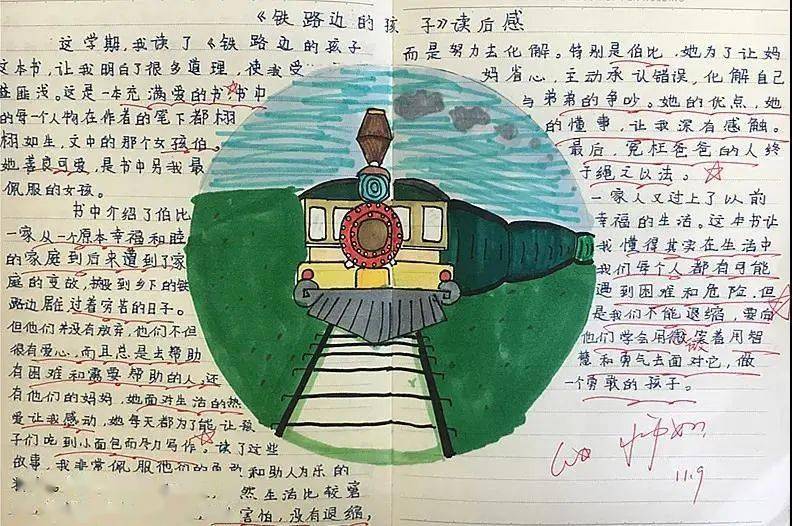 《铁路边的孩子》读后感
这学期,我读了《铁路边的孩子
这本书,让我明白了很多道理,使我受
益匪浅。这是一本充满爱的书,书中
的每个人物在作者的笔下都栩
栩如生,文中的那个女孩伯
她善良可爱,是书中另我最
佩服的女孩。
书中介绍了伯比
一家从一个原本幸福和睦
的家庭到后来遭到了家
庭的变故,搬到乡下的铁
路边居住,过着穷苦的日子。
但他们并没有放弃,他们不但
很有爱心,而且总是去帮助
有困难和需要帮助的人,还
有他们的妈妈,她面对生活的热
爱让我感动,她每天都为了能让孩
子们吃到小面包而尽力写作。读了这些
故事,我非常佩服他们的 和助人为乐的
然生活比较
害怕,没有退缩,
而是努力去化解。特别是伯比,她为了让妈
妈省心,主动承认错误,化解自己
与弟弟的争吵。她的优点,她
的懂事,让我深有感触。
最后,冤枉爸爸的人终
于绳之以法。
一家人又过上了以前
幸福的生活。这本书让
我懂得其实在生活中
我们每个人都有可能
遇到困难和危险,但
是我们不能退缩,要向
他们学会用微笑着用智
慧和勇气去面对它,做
一个勇敢的孩子。
11.9